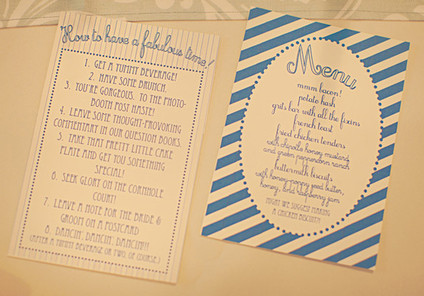 How to have a fabulous time!
1. GET A YUMMY BEVERAGE!
2. HAVE SOME BRUNCH.
3. YOU'RE GORGEOUS. TO THE PHOTO-
BOOTH POST HASTE!
4. LEAVE SOME THOUGHT-PROVOKING
COMMENTARY IN OUR QUESTION BOOKS.
5. TAKE THAT PRETTY LITTLE CAKE
PLATE AND GET YOU SOMETHING
SPECIAL!
6. SEEK GLORY ON THE CORNHOLE
COURT!
7. LEAVE A NOTE FOR THE BRIDE &
GROOM ON A POSTCARD
8. DANCIN', DANCIN', DANCIN'!!!
(AFTER A YUMMY BEVERAGE OR TWO, OF COURSE.)
Menu
mmm bacon!
potato hash
grits bar with all the fixins
french toast
fried chicken tenders
with chipotle honey mustard
and green peppercorn ranch
buttermilk biscuits
with honey-curry goat butter,
honey,
MIGHT WE SUGGEST MAKING
A CHICKEN BISCUIT?